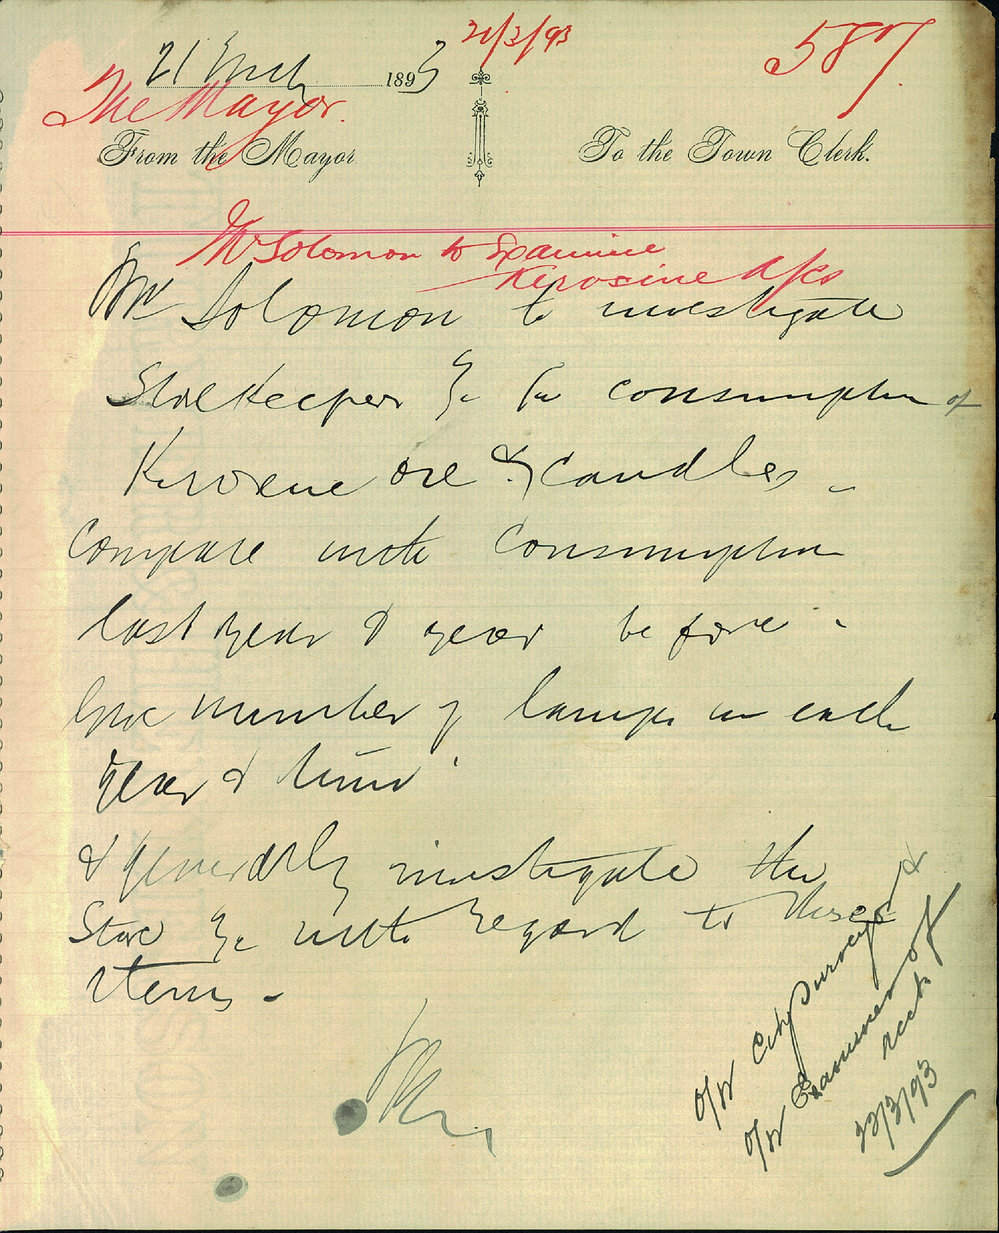 21/3/93
587
21 March 1893
The Mayor.
From the Mayor
To the Town Clerk.
Mr Solomon to Examine
Kerosine a/cs
Mr Solomon to investigate
Storekeeper &c for consumption of
Kerosene oil & candles -
Compare with consumption
last year & year before -
Give number of lamps in each
year &
& generally investigate the
Store &c with regard to these
items -
O/W City Surveyor &
O/W Examiner of
acct
22/3/93